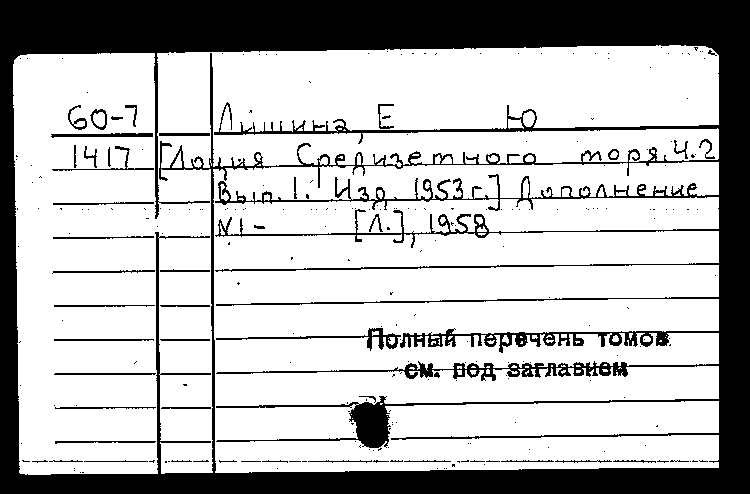 60-7 Лишина, Е Ю
1417 [Лоция Средиземного моря. Ч.2
Вып. 1. Изд. 1953 г.] Дополнение
N1 - [Л.], 1958.
Полный перечень томов
см. под заглавием